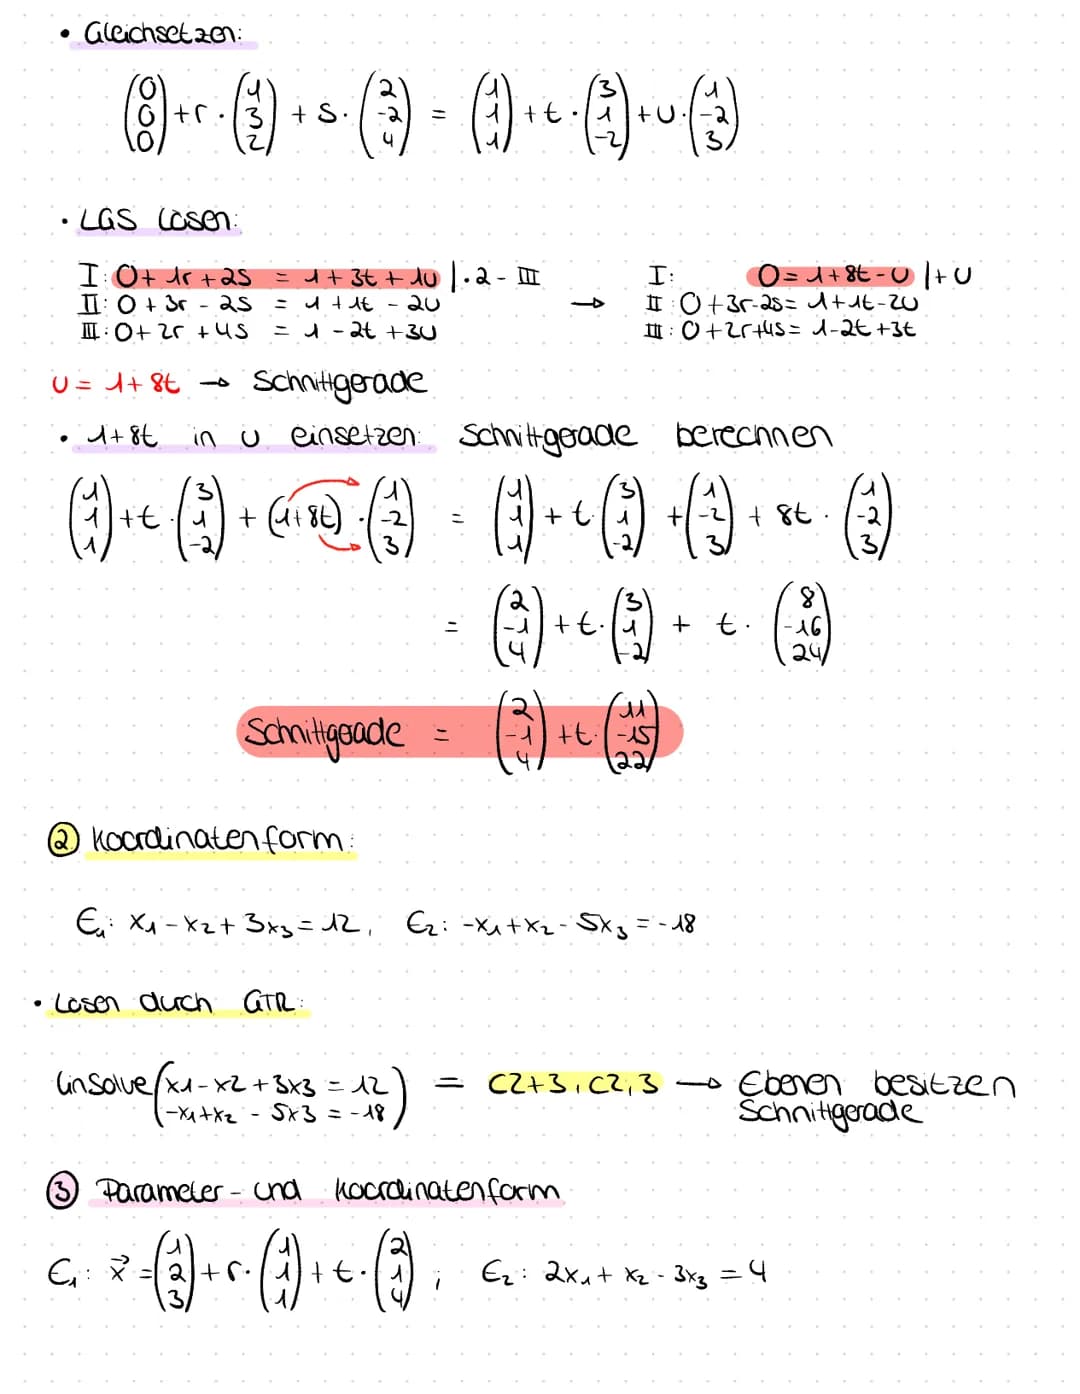 • Gleichsetzen:
(0 0 0) + r · (1 3 2) + s · (2 -2 4) = (1 1 1) + t · (3 1 -2) + u · (1 -2 3)
• LGS lösen:
I: 0 + 1r + 2s = 1 + 3t + 1u | · 2 - III → I: 0 = 1 + 8t - u | + u
II: 0 + 3r - 2s = 1 + 1t - 2u II: 0 + 3r - 2s = 1 + 1t - 2u
III: 0 + 2r + 4s = 1 - 2t + 3u III: 0 + 2r + 4s = 1 - 2t + 3t
u = 1 + 8t → Schnittgerade
• 1 + 8t in u einsetzen: Schnittgerade berechnen
(1 1 1) + t · (3 1 -2) + (1 + 8t) · (1 -2 3) = (1 1 1) + t · (3 1 -2) + (1 -2 3) + 8t · (1 -2 3)
= (2 -1 4) + t · (3 1 -2) + t · (8 -16 24)
Schnittgerade = (2 -1 4) + t · (11 -15 22)
② Koordinatenform:
E₁: x₁ - x₂ + 3x₃ = 12, E₂: -x₁ + x₂ - 5x₃ = -18
• Lösen durch GTR:
linSolve (x1 - x2 + 3x3 = 12 = c2+3, c2, 3 → Ebenen besitzen
-x1 + x2 - 5x3 = -18) Schnittgerade
③ Parameter- und Koordinatenform
E₁: x⃗ = (1 2 3) + r · (1 1 1) + t · (2 1 4) ; E₂: 2x₁ + x₂ - 3x₃ = 4